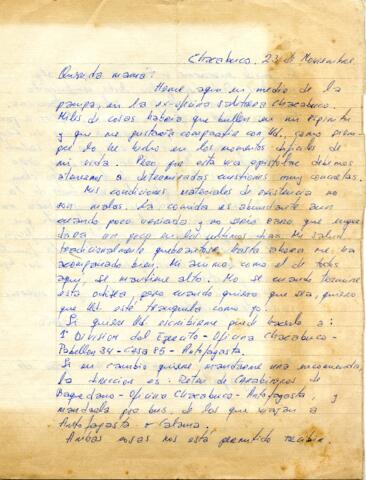 Chacabuco. 23 de Noviembre
Querida mamá:
Heme aquí en medio de la
pampa, en la ex-oficina salitrera Chacabuco.
Miles de cosas habría que bullen en mi espíritu
y que me gustaría compartir con Ud., como siem-
pre lo he hecho en los momentos difíciles de
mi vida. Pero que esta vez debemos
atenernos a determinadas cuestiones muy concretas.
Mis condiciones materiales de existencia no
son malas. La comida es abundante aun
cuando poco variada y no sería raro que engor-
dara un poco en los últimos días. Mi salud,
tradicionalmente quebradiza, hasta ahora me ha
acompañado bien. Mi ánimo, como el de todos
aquí, se mantiene alto. No sé cuando termine
esta odisea pero cuando quiera que sea, quiero
que Ud. esté tranquila como yo.
Si quiere Ud. escribirme puede hacerlo a:
1ª División del Ejército - Oficina Chacabuco -
Pabellón 34 - Casa 85 - Antofagasta.
Si en cambio quiere mandarme una encomienda,
la dirección es: Retén de Carabineros de
Baquedano - Oficina Chacabuco - Antofagasta, y
mandarla por bus, de los que viajan a
Antofagasta o Calama.
Ambas cosas nos está permitido recibir.